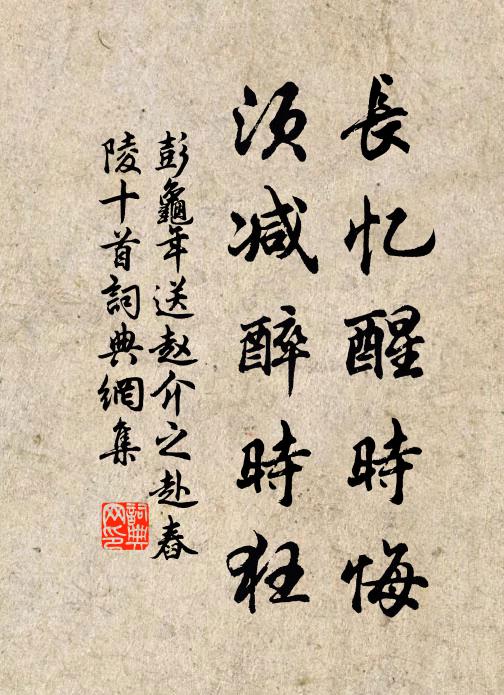 長忆醒時悔
須减醉時狂
彭龜年送赵介之赴春
陵十首詞典網集
詞典
网印